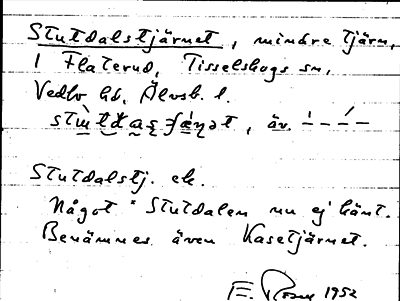 Stutdalstjärnet, mindre tjärn,
i Flaterud, Tisselskogs sn,
Vedbo hd, Älvsb. l.
, äv.
Stutdalstj. ek.
Något * Stutdalen nu ej känt.
Benämnes även Kasetjärnet.
E. 1952